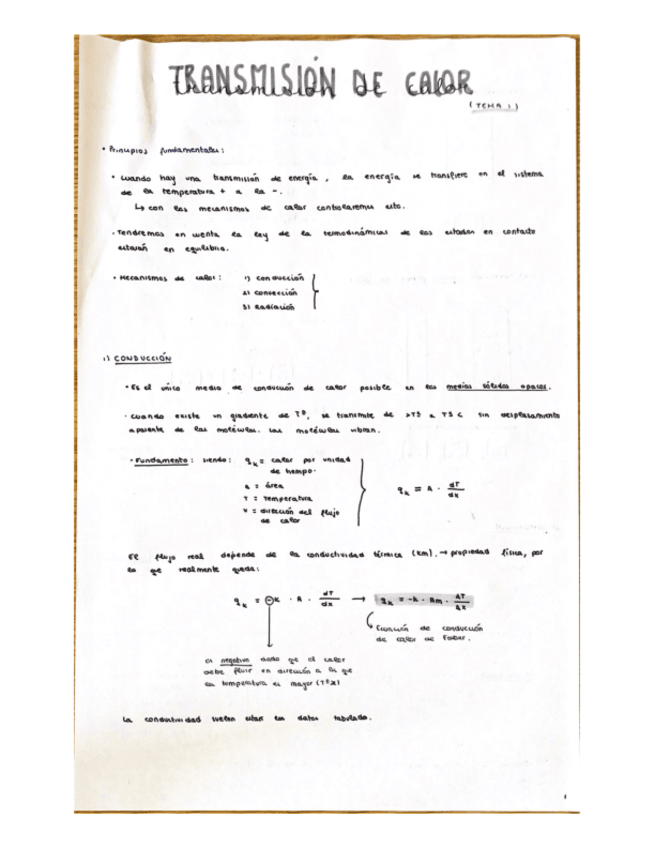 TRANSMISIÓN DE CALOR
(TEMA 1)
• Principios fundamentales:
• Cuando hay una transmisión de energía, la energía se transfiere en el sistema
de la temperatura + a la -.
↳ con los mecanismos de calor controlaremos esto.
• Tendremos en cuenta la ley de la termodinámicas de los estados en contacto
estarán en equilibrio.
• Mecanismos de calor: 1) conducción
2) convección
3) Radiación
1) CONDUCCIÓN
• Es el único medio de conducción de calor posible en los medios sólidos opacos.
• Cuando existe un gradiente de Tª, se transmite de >TS a TS< sin desplazamiento
aparente de las moléculas. Las moléculas vibran.
• Fundamento: siendo: qk = calor por unidad
de tiempo.
A = área
T = temperatura
x = dirección del flujo
de calor
qk = A · dT/dx
El flujo real depende de la conductividad térmica (km). → propiedad física, por
lo que realmente queda:
qk = -k · A · dT/dx → qk = -k · Am · ΔT/Δx
Ecuación de conducción
de calor de
es negativo dado que el calor
debe fluir en dirección a la que
la temperatura es mayor
La conductividad suelen estar los datos tabulado.
1